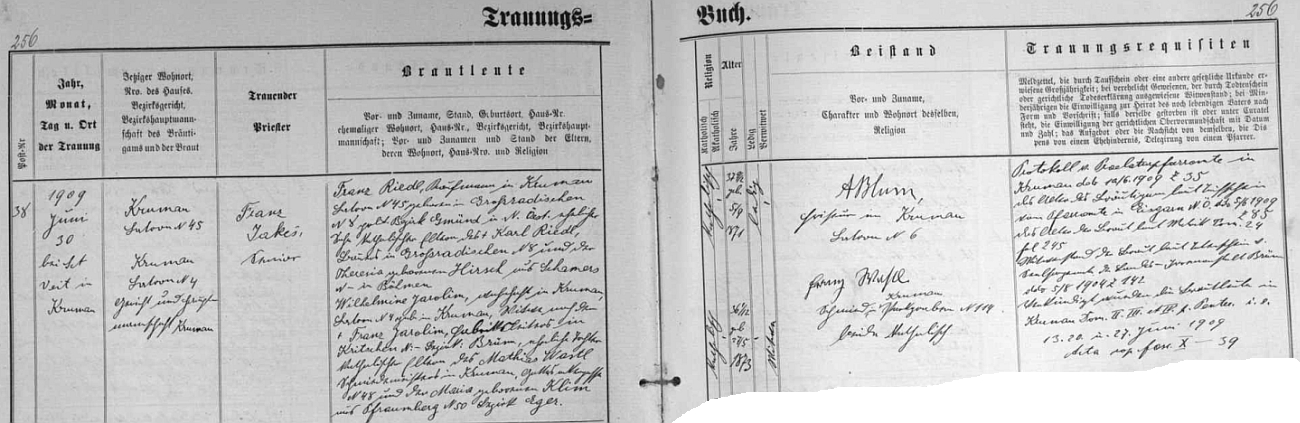 Trauungs=
Buch.
256
256
Post-Nr
Jahr,
Monat,
Tag u. Ort
der Trauung
Jetziger Wohnort,
Nro. des Hauses,
Bezirksgericht,
Bezirkshauptmann-
schaft des Bräuti-
gams und der Braut
Trauender
Priester
Brautleute
Vor- und Zuname, Stand, Geburtsort, Haus-Nr.
ehemaliger Wohnort, Haus-Nr., Bezirksgericht, Bezirkshaupt-
mannschaft; Vor- und Zunamen und Stand der Eltern,
deren Wohnort, Haus-Nro. und Religion
Religion
Katholisch
Akatholisch
Alter
Jahre
Ledig
Verwitwet
Beistand
Vor- und Zuname,
Charakter und Wohnort desselben,
Religion
Trauungsrequisiten
Meldzettel, die durch Taufschein oder eine andere gesetzliche Urkunde er-
wiesene Großjährigkeit; bei verehelicht Gewesenen, der durch Todtenschein
oder gerichtliche Todeserklärung ausgewiesene Witwenstand; bei Min-
derjährigen die Einwilligung zur Heirat des noch lebenden Vaters nach
Form und Vorschrift; falls derselbe gestorben ist oder unter Curatel
steht, die Einwilligung der gerichtlichen Obervormundschaft mit Datum
und Zahl; das Aufgebot oder die Nachsicht von demselben, die Dis
pens von einem Ehehindernis, Delegirung von einem Pfarrer.
38
1909
Juni
30
bei Sct
Veit in
Krumau
Krumau
Latron N 45
Krumau
Latron N 4
Gericht und
mannschaft Krumau
Franz
Jakeš,
Senior
Franz Riedl, Kaufmann in Krumau
Latron N 45, geboren in Großradischen
N 8 polit. Bezirk Gmünd in N. Oest. ehelicher
Sohn katholischer Eltern, des + Karl Riedl,
in Großradischen N 8 und der
Theresia geborenen Hirsch aus Schamers
N – in Böhmen
Wilhelmine Jarolim, wohnhaft in Krumau,
Latron N 4 geb. in Krumau, Witwe nach dem
+ Franz Jarolim, in
Kritschen N – Bezirk Brünn, eheliche Tochter
katholischer Eltern, des Mathias Wastl
Schmiedemeisters in Krumau,
N 48 und der Maria geborenen Klim
aus Pfraumberg N 50 Bezirk Eger.
kath.
37 10/12
geb.
5/9
871
ledig
kath.
36 1/12
geb.
1873
Witwe
ABlum,
in Krumau
Latron N 6
Franz Wastl
Krumau
Schmied, N 114
beide katholisch
Protokoll v. Prälaturpfarramte in
Krumau ddo 12/6 1909 Z 35
des Bräutigam laut Taufschein
vom Pfarramte in N.Ö. ddo 5/6 1909
der Braut laut Matrik Tom. 24
Z 85
fol 245
Witwenstand der Braut laut Totenschein v.
Brünn
ddo 5/8 1904 Z 142
Verkündigt wurden die Brautleute in
Krumau Dom. II. III. et IV. p. Pentec. i. e.
13. 20. u. 27. Juni 1909
Acta fasc. X – 39